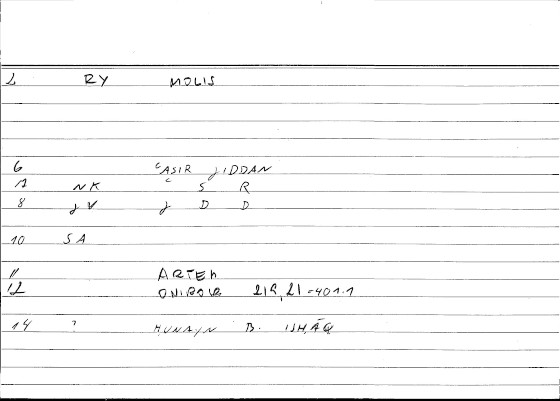 2 RY MOLIS
6 ʿASIR JIDDAN
1 NK ʿ S R
8 JV J D D
10 SA
11 ARTEM
12 ONIROCR 219,21=401.1
14 ? ḤUNAYN B. ISḤĀQ